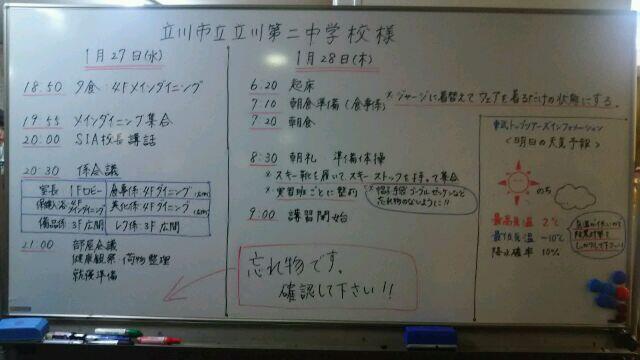 立川市立立川第二中学校様
1月27日(水)
18:50 夕食:4Fメインダイニング
19:55 メインダイニング集合
20:00 SIA校長講話
20:30 係会議
室長 1Fロビー 食事係:4Fダイニング
保健入浴:4Fメインダイニング 美化係:4Fダイニング
備品係:3F広間 レク係:3F広間
21:00 部屋会議
健康観察・荷物整理
就寝準備
1月28日(木)
6:20 起床
7:10 朝食準備(食事係)
*ジャージに着替えてウェアを着るだけの状態にする。
7:20 朝食
8:30 朝礼 準備体操
*スキー靴を履いて、スキーストックを持って集合
*実習班ごとに整列
*帽子・手袋・ゴーグル・ゼッケンなど
忘れ物のないように!!
9:00 講習開始
忘れ物です。
確認して下さい!!
東武トップツアーズインフォメーション
<明日の天気予報>
のち
最高気温 2℃
最低気温 -10℃
降水確率 10%
気温が低いので
防寒対策を
しっかりして下さい!